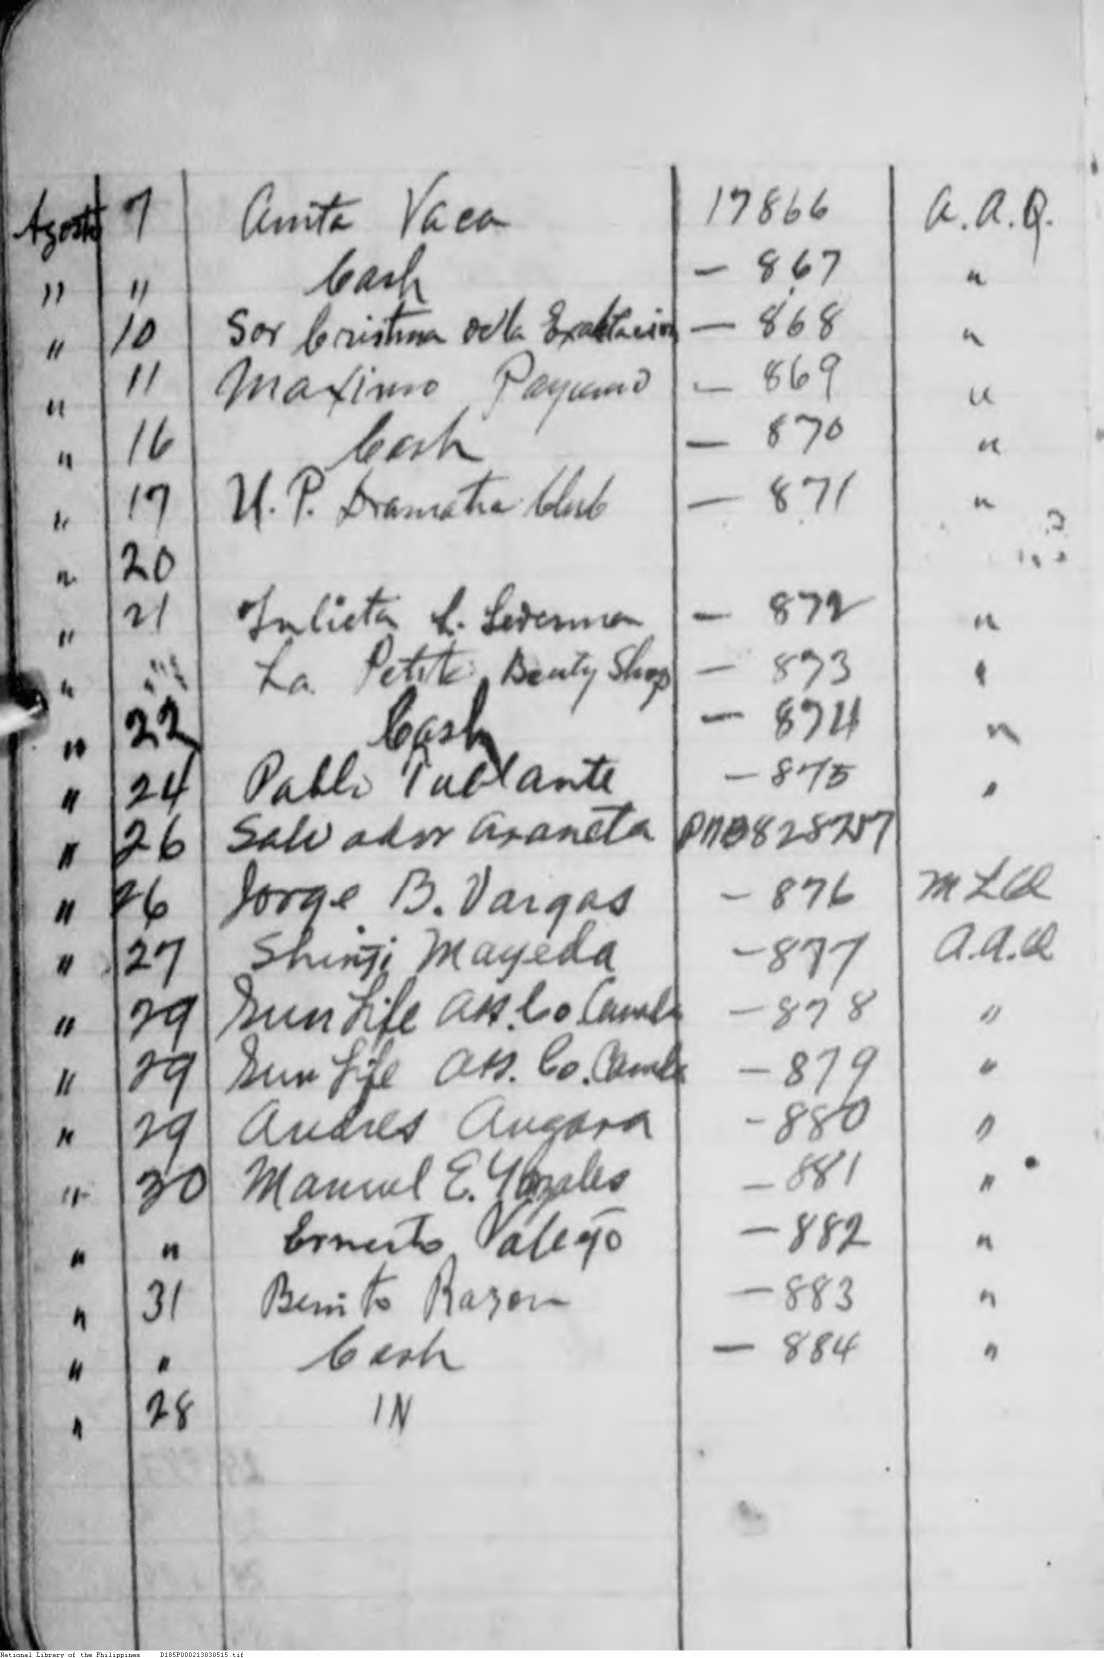 Agosto 7 Anita Vaca 17866 A.A.Q.
" " Cash — 867 "
" 10 Sor Cristina de la Exaltacion — 868 "
" 11 Maximo Payumo — 869 "
" 16 Cash — 870 "
" 17 U.P. Dramatic Club — 871 "
" 20
" 21 Julieta L. Lederman — 872 "
" " La Petite Beauty Shop — 873 "
" 22 Cash — 874 "
" 24 Pablo Tablante — 875 "
" 26 Salvador Araneta PNB 828757
" 26 Jorge B. Vargas — 876 MLQ
" 27 Shinji Mayeda — 877 A.A.Q
" 29 Sun Life Ass. Co Canada — 878 "
" 29 Sun Life Ass. Co. Canada — 879 "
" 29 Andres Angara — 880 "
" 30 Manuel E. — 881 "
" " Ernesto Vallejo — 882 "
" 31 Benito Razon — 883 "
" " Cash — 884 "
" 28 IN
National Library of the Philippines D185P000213830515.tif